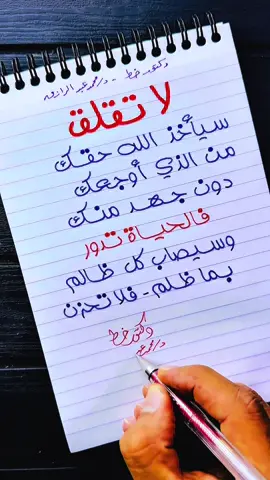 دكتور خط - د/محمد عبد الرازق
لا تقلق
سيأخذ الله حقك
من الذي أوجعك
دون جهد منك
فالحياة تدور
وسيصاب كل ظالم
بما ظلم - فلا تحزن
دكتور خط
د/محمد عبد